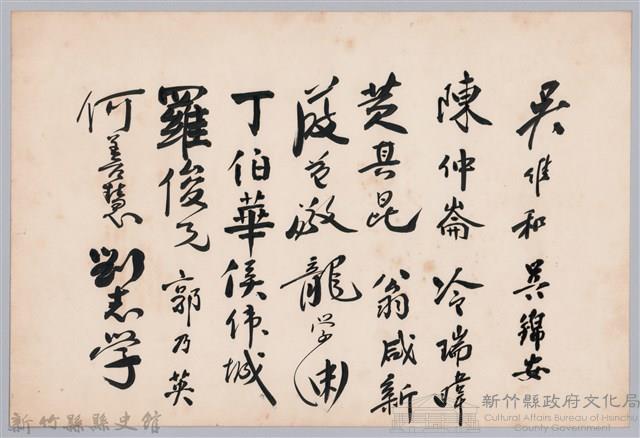 吳惟和 吳錦安
陳仲崙 冷瑞暐
黃其昆 翁咸新
龍学
丁伯華 侯伟城
羅俊元 郭乃英
何善慧 劉志学
新竹縣縣史館
新竹縣政府文化局
Cultural Affairs Bureau of Hsinchu
County Government